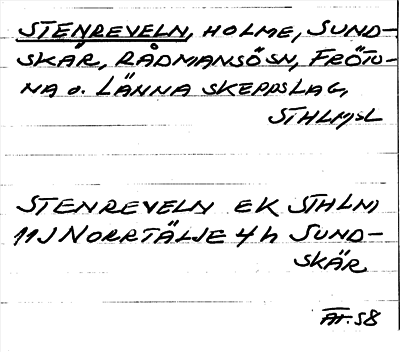 STENREVELN, HOLME, SUND-
SKÄR, RÅDMANSÖSN, FRÖTU-
NA o. LÄNNA SKEPPSLAG,
STHLMSL
STENREVELN EK STHLM
11J NORRTÄLJE 4h SUND-
SKÄR
AT. 58